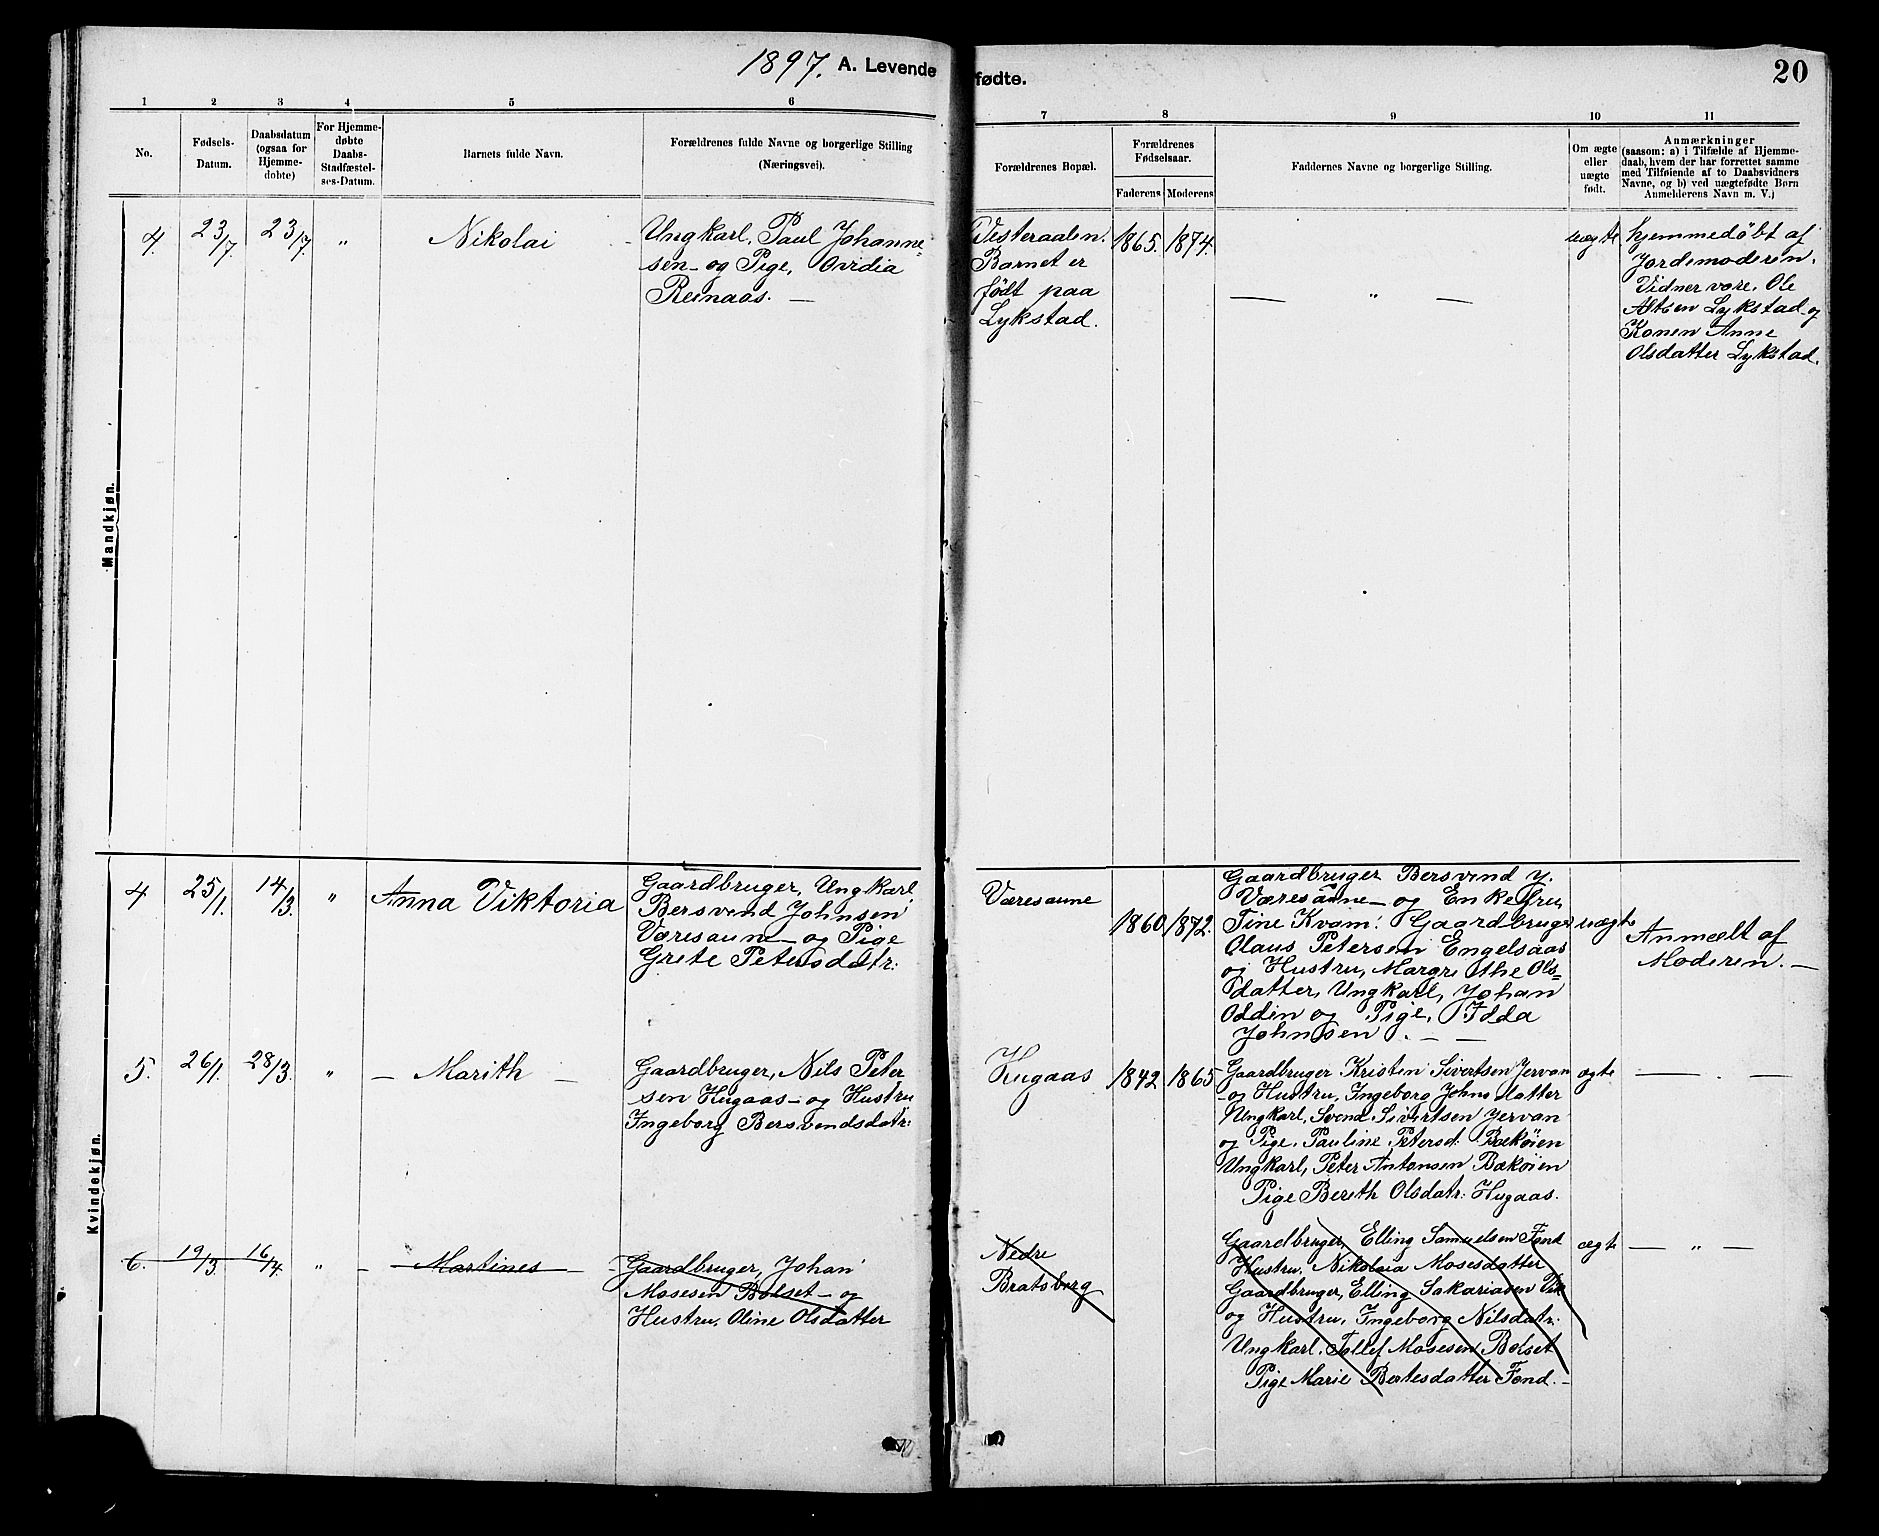 1897. A. Levende fødte. 20
1 2 3 4 5 6 7 8 9 10 11
No.
Fødsels-
Datum.
Daabsdatum
(ogsaa for
Hjemme-
døbte)
For Hjemme-
døbte
Daabs-
Stadfæstel-
ses-Datum.
Barnets fulde Navn.
Forældrenes fulde Navne og borgerlige Stilling
(Næringsvei).
Forældrenes Bopæl.
Forældrenes
Fødselsaar.
Faderens Moderens
Faddernes Navne og borgerlige Stilling.
Om ægte
eller
uægte
født.
Anmærkninger
(saasom: a) i Tilfælde af Hjemme-
daab, hvem der har forrettet samme
med Tilføiende af to Daabsvidners
Navne, og b) ved uægtefødte Børn
Anmelderens Navn m. V.)
Mandkjøn.
4. 23/7 23/7. " Nikolai
Ungkarl, Paul Johanne
sen- og Pige, Ovidia
Reinaas. —
Vesteraalen.
Barnet er
født paa
Lykstad.
1865. 1874.
— " —
uægte
hjemmedøbt af
Jordemoderen.
Vidner vare, Ole
Lykstad og
Konen Anne
Olsdatter Lykstad.
Kvindekjøn.
4 25/1. 14/3. " Anna Viktoria
Gaardbruger, Ungkarl
Bersvend Johnsen
Væresaune- og Pige
Grete Petersdatr:
Væresaune
1860 1872.
Gaardbruger Bersvend J.
Væresaune- og Enkefru,
Tine Kvam. Gaardbruger
Olaus Petersen Engelsaas
og Hustru, Margrethe Ols=
datter, Ungkarl, Johan
Oddin og Pige, Idda
Johnsen. — —
uægte
Anmeldt af
Moderen. —
5. 26/1. 28/3. " — Marith —
Gaardbruger, Nils Peter
sen Hugaas- og Hustru
Ingeborg Bersvendsdatr:
Hugaas
1842 1865
Gaardbruger Kristen Sivertsen Jervan
- og Hustru, Ingeborg Johnsdatter
Ungkarl, Svend Sivertsen Jervan
og Pige, Pauline Petersd: Bækøien
Ungkarl, Peter Antonsen Bækøien
Pige Berith Olsdatr: Hugaas.
ægte
— . —
6. 19/3. 16/4. " — Martines —
Gaardbruger, Johan
Mosesen Bolset- og
Hustru, Oline Olsdatter
Nedre
Bratsberg
Gaardbruger, Elling Samuelsen Fond
Hustru, Nikolaia Mosesdatter
Gaardbruger, Elling Sakariasen Vik
og Hustru, Ingeborg Nilsdatr:
Ungkarl, Tollef Mosesen Bolset
Pige Marie Bertesdatter Fond. —
ægte
— " —